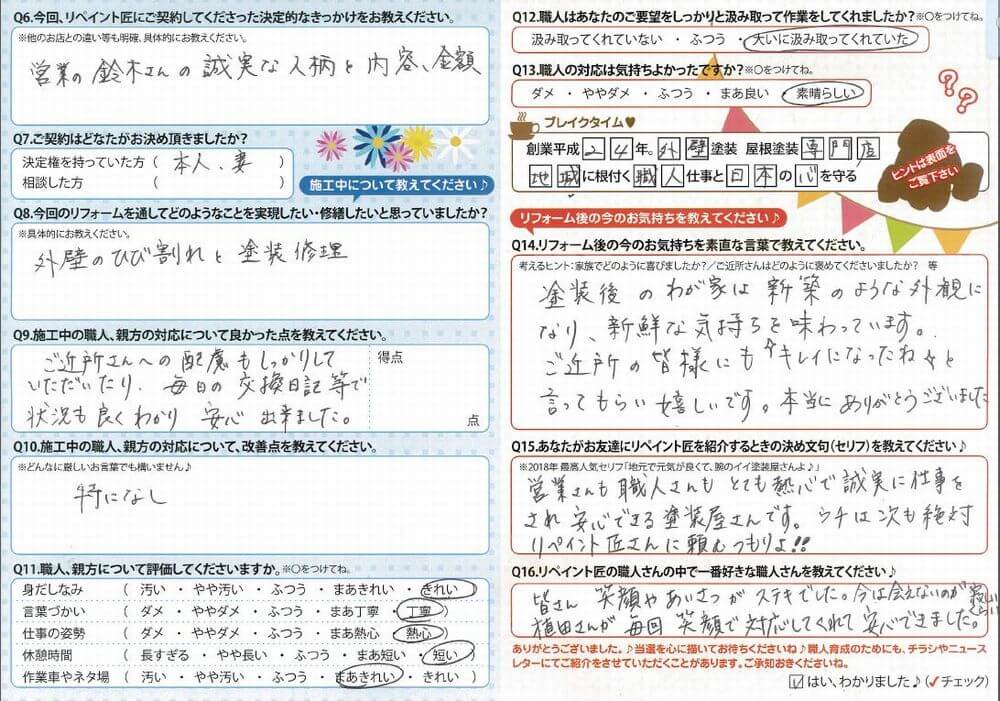 Q6.今回、リペイント匠にご契約してくださった決定的なきっかけをお教えください。
※他のお店との違い等も明確、具体的にお教えください。
営業の鈴木さんの誠実な人柄と内容、金額
Q7.ご契約はどなたがお決め頂きましたか?
決定権を持っていた方( 本人、妻 )
相談した方( )
施工中について教えてください♪
Q8.今回のリフォームを通してどのようなことを実現したい・修繕したいと思っていましたか?
※具体的にお教えください。
外壁のひび割れと塗装修理
Q9.施工中の職人、親方の対応について良かった点を教えてください。
ご近所さんへの配慮もしっかりして
いただいたり、毎日の交換日記等で
状況も良くわかり 安心出来ました。
得点
点
Q10.施工中の職人、親方の対応について、改善点を教えてください。
※どんなに厳しいお言葉でも構いません♪
特になし
Q11.職人、親方について評価してくださいますか。※○をつけてね。
身だしなみ ( 汚い ・ やや汚い ・ ふつう ・ まあきれい ・ きれい )
言葉づかい ( ダメ ・ ややダメ ・ ふつう ・ まあ丁寧 ・ 丁寧 )
仕事の姿勢 ( ダメ ・ ややダメ ・ ふつう ・ まあ熱心 ・ 熱心 )
休憩時間 ( 長すぎる ・ やや長い ・ ふつう ・ まあ短い ・ 短い )
作業車やネタ場 ( 汚い ・ やや汚い ・ ふつう ・ まあきれい ・ きれい )
Q12.職人はあなたのご要望をしっかりと汲み取って作業をしてくれましたか?※○をつけてね。
汲み取ってくれていない ・ ふつう ・ 大いに汲み取ってくれていた
Q13.職人の対応は気持ちよかったですか?※○をつけてね。
ダメ ・ ややダメ ・ ふつう ・ まあ良い ・ 素晴らしい
??
ブレイクタイム♥
創業平成24年。外壁塗装 屋根塗装専門店
地域に根付く職人仕事と日本の心を守る
ヒントは表面を
ご覧下さい
リフォーム後の今のお気持ちを教えてください♪
Q14.リフォーム後の今のお気持ちを素直な言葉で教えてください。
考えるヒント:家族でどのように喜びましたか?/ご近所さんはどのように褒めてくださいましたか? 等
塗装後のわが家は新築のような外観に
なり、新鮮な気持ちを味わっています。
ご近所の皆様にも〝キレイになったね〟と
言ってもらい嬉しいです。本当にありがとうございました
Q15.あなたがお友達にリペイント匠を紹介するときの決め文句(セリフ)を教えてください♪
※2018年 最高人気セリフ「地元で元気が良くて、腕のイイ塗装屋さんよ♪」
営業さんも職人さんもとても熱心で誠実に仕事を
され安心できる塗装屋さんです。ウチは次も絶対
リペイント匠さんに頼むつもりよ!!
Q16.リペイント匠の職人さんの中で一番好きな職人さんを教えてください♪
皆さん笑顔やあいさつがステキでした。今は会えないのが寂しいくらい
植田さんが毎回笑顔で対応してくれて安心できました。
ありがとうございました。♪当選を心に描いてお待ちくださいね♪職人育成のためにも、チラシやニュース
レターにてご紹介をさせていただくことがあります。ご承知おきくださいね。
☑はい、わかりました♪(✓チェック)